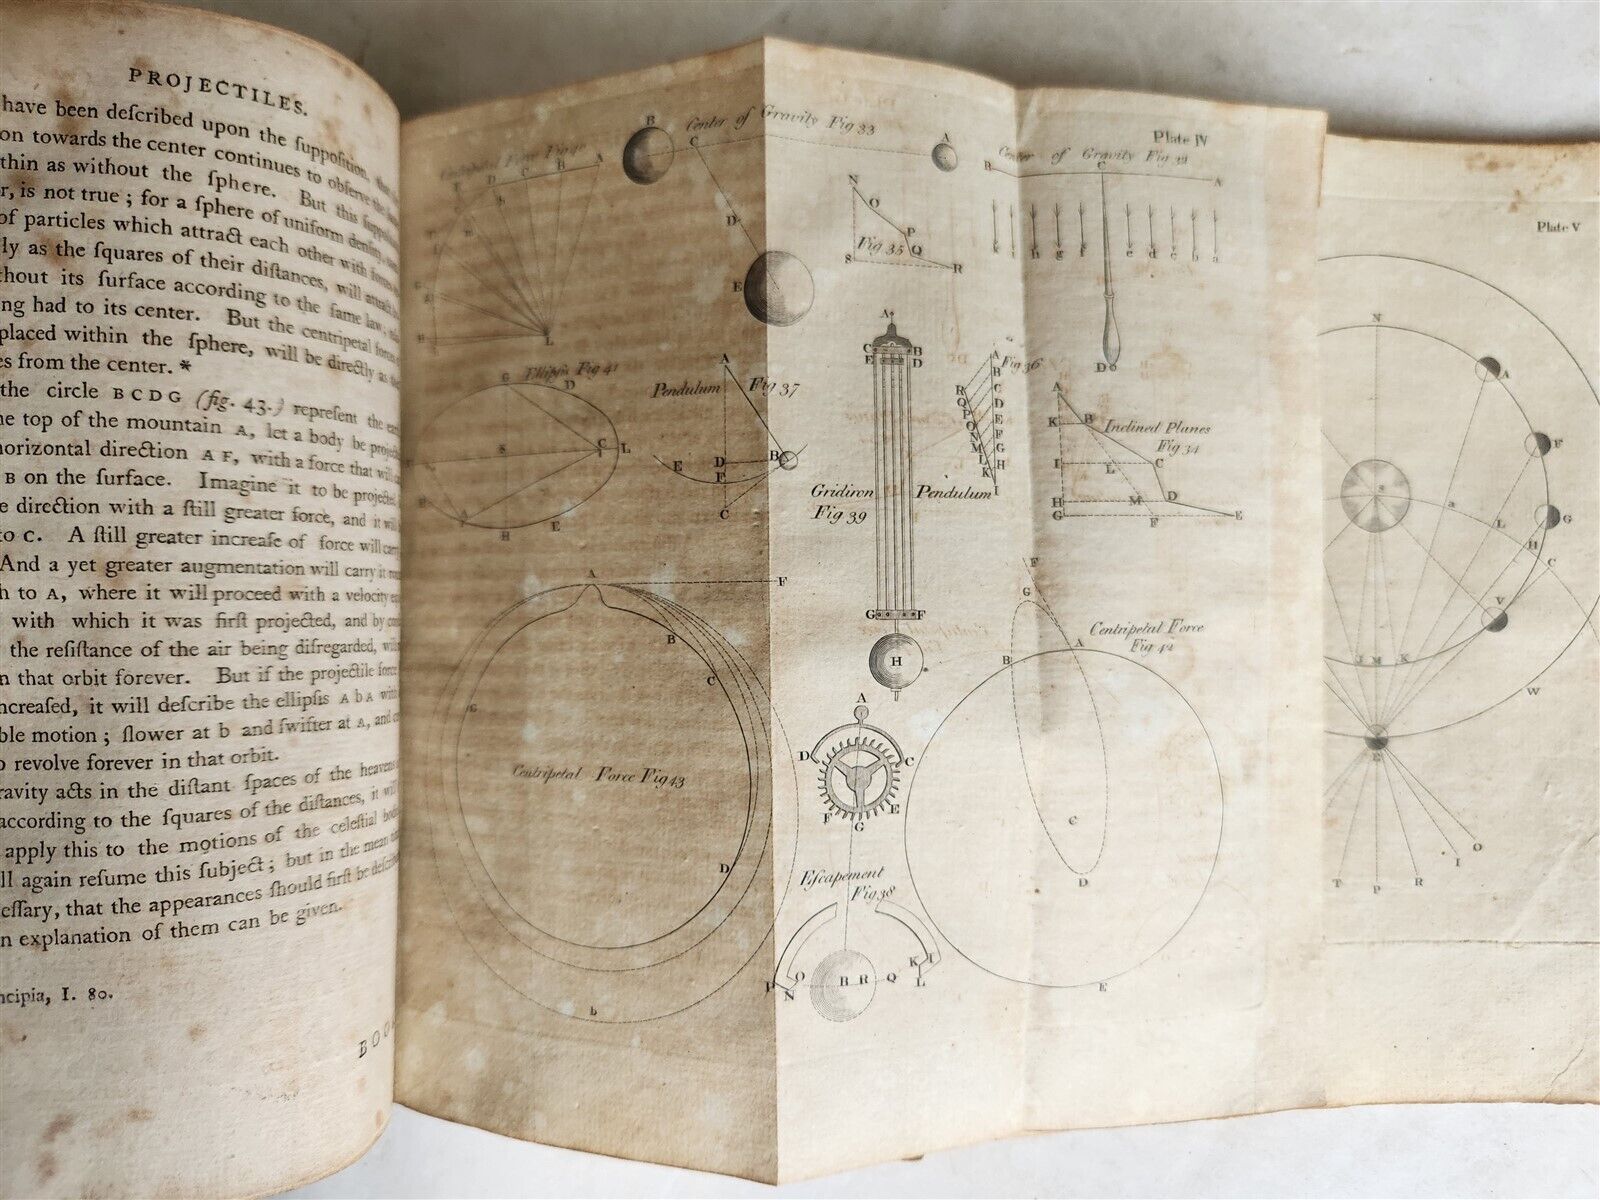 PROJECTILES.
have been deſcribed upon the ſuppoſition, that
on towards the center continues to obſerve the
thin as without the ſphere. But this ſuppoſition
r, is not true; for a ſphere of uniform denſity,
of particles which attract each other with forces
ly as the ſquares of their diſtances, will attract
thout its ſurface according to the ſame law,
ing had to its center. But the centripetal force
placed within the ſphere, will be directly as the
es from the center. *
the circle B C D G (fig. 43.) repreſent the
he top of the mountain A, let a body be
horizontal direction A F, with a force that will
B on the ſurface. Imagine it to be projected
e direction with a ſtill greater force, and it will
to C. A ſtill greater increaſe of force will carry
And a yet greater augmentation will carry it
h to A, where it will proceed with a velocity
with which it was firſt projected, and by
the reſiſtance of the air being diſregarded,
n that orbit forever. But if the projectile force
ncreaſed, it will deſcribe the ellipſis A b A with
ble motion; ſlower at b and ſwifter at A, and
o revolve forever in that orbit.
ravity acts in the diſtant ſpaces of the heavens
according to the ſquares of the diſtances, it will
apply this to the motions of the celeſtial
ll again reſume this ſubject; but in the mean
eſſary, that the appearances ſhould firſt be
n explanation of them can be given.
ncipia, I. 80.
BOO
Plate IV
Center of Gravity Fig 33
B C A
D
E
Center of Gravity Fig 32
B C A
k i h g f e d c b a
D
Centripetal Force Fig 40
F D C B A
b
L
H
N O P Q R S
Fig 35
Ellipsis Fig 41
G D
S C L
A E
H
Pendulum Fig 37
A
B
D
E F
C
A
C B
E D
Gridiron Pendulum
Fig 39
G F
H
Fig 36
A B C D E F G H I
R Q P O N M L K
Inclined Planes
Fig 34
A
K B
I L C
H M D
G F E
Centripetal Force Fig 43
A F
B
C
G
D
b
A
D C
F G E
Escapement
Fig 38
P N O B R Q L K I
Centripetal Force
Fig 42
F
G
B A
C
D
E
Plate V
N
A
F
G
H
L
a
C
V
I M K
W
E
T P R I O